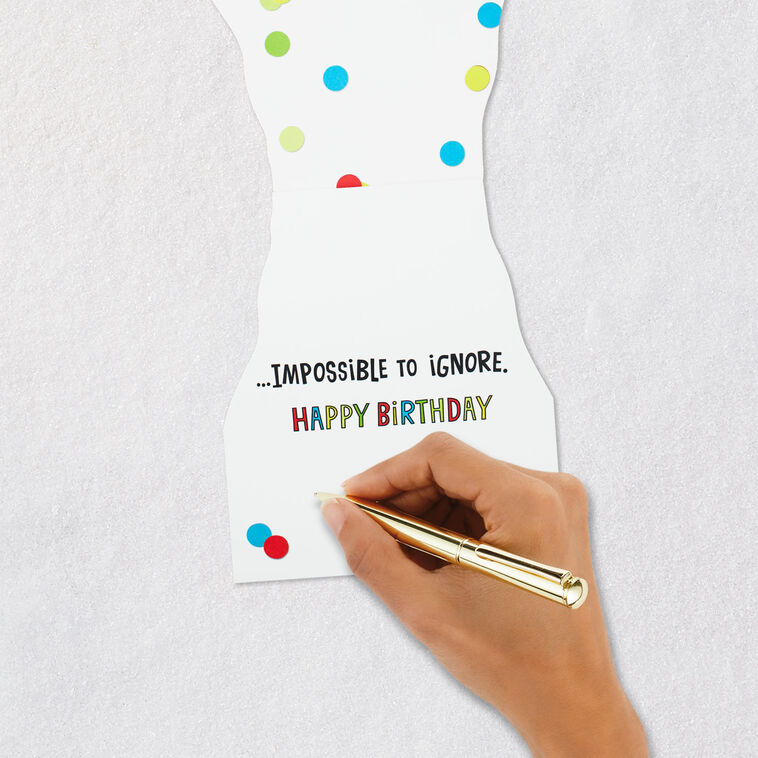 ...IMPOSSiBLE TO iGNORE.
HAPPY BiRTHDAY